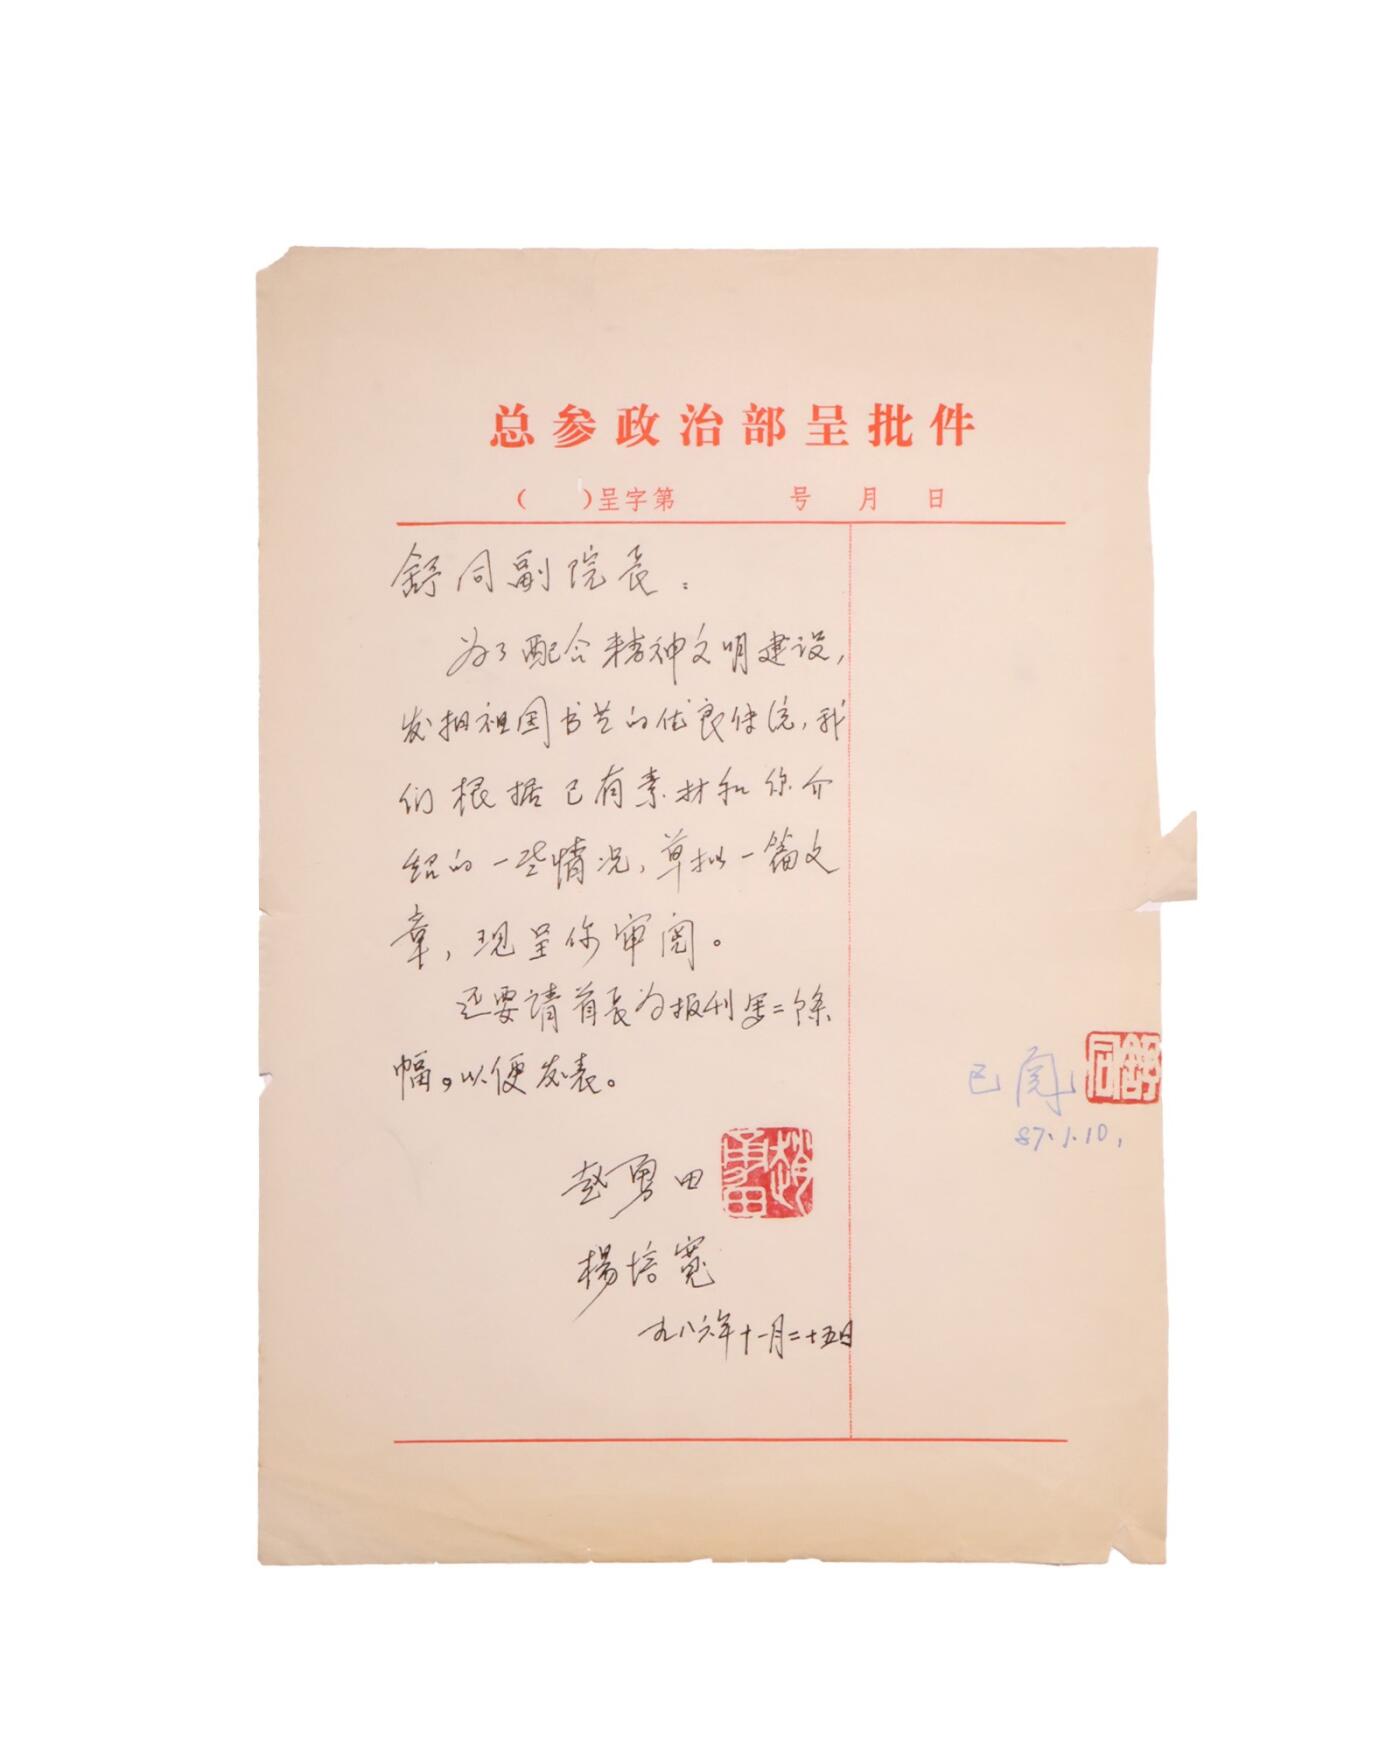 总参政治部呈批件
（ ）呈字第 号 月 日
舒同副院长：
为了配合精神文明建设，
发扬祖国书艺的优良传统，我
们根据已有素材和你介
绍的一些情况，草拟一篇文
章，现呈你审阅。
还要请首长为报刊写二条
幅，以便发表。
赵勇田
趙勇田
楊培寬
一九八六年十一月二十五日
已阅
舒同
87.1.10.